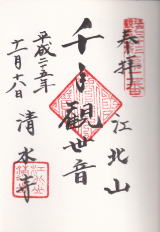 奉拝
江北山
千手観世音
平成二五年
十一月十八日
清水寺